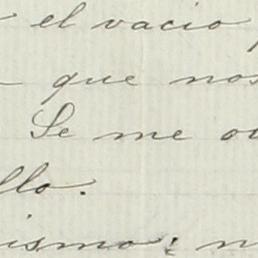 el vacio
que nos
Se me
llo.
ismo; n